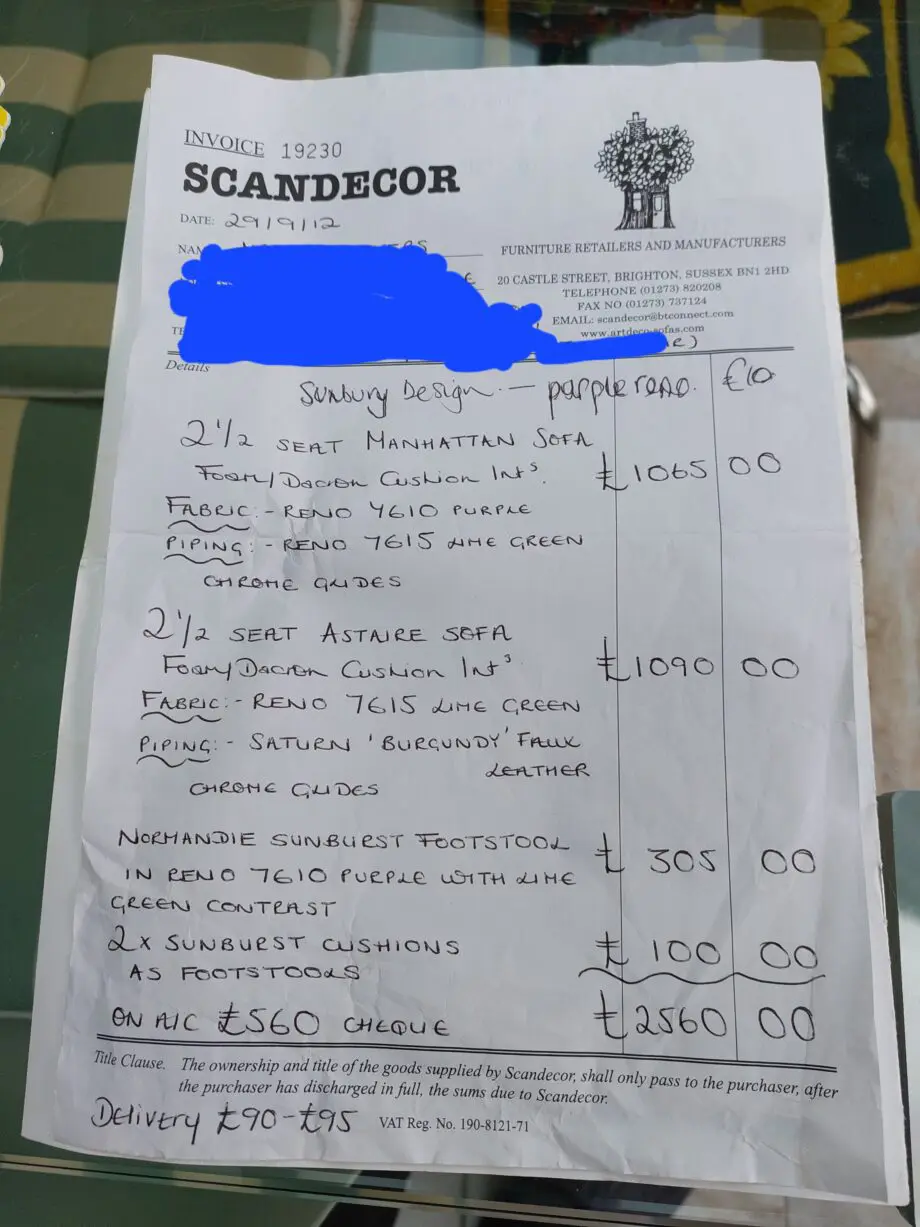 INVOICE 19230
SCANDECOR
DATE: 29/9/12
FURNITURE RETAILERS AND MANUFACTURERS
20 CASTLE STREET, BRIGHTON, SUSSEX BN1 2HD
TELEPHONE (01273) 820208
FAX NO (01273) 737124
EMAIL: scandecor@btconnect.com
www.artdeco-sofas.com
Details
Sunbury Design. — purple reno. £10
2 1/2 SEAT MANHATTAN SOFA
Foam/Dacron Cushion Ints. £1065 00
FABRIC:- RENO 7610 PURPLE
PIPING:- RENO 7615 LIME GREEN
CHROME GLIDES
2 1/2 SEAT ASTAIRE SOFA
Foam/Dacron Cushion Ints £1090 00
FABRIC:- RENO 7615 LIME GREEN
PIPING:- SATURN 'BURGUNDY' FAUX
LEATHER
CHROME GLIDES
NORMANDIE SUNBURST FOOTSTOOL £ 305 00
IN RENO 7610 PURPLE WITH LIME
GREEN CONTRAST
2x SUNBURST CUSHIONS £ 100 00
AS FOOTSTOOLS
ON A/C £560 CHEQUE £2560 00
Title Clause. The ownership and title of the goods supplied by Scandecor, shall only pass to the purchaser, after
the purchaser has discharged in full, the sums due to Scandecor.
Delivery £90-£95 VAT Reg. No. 190-8121-71